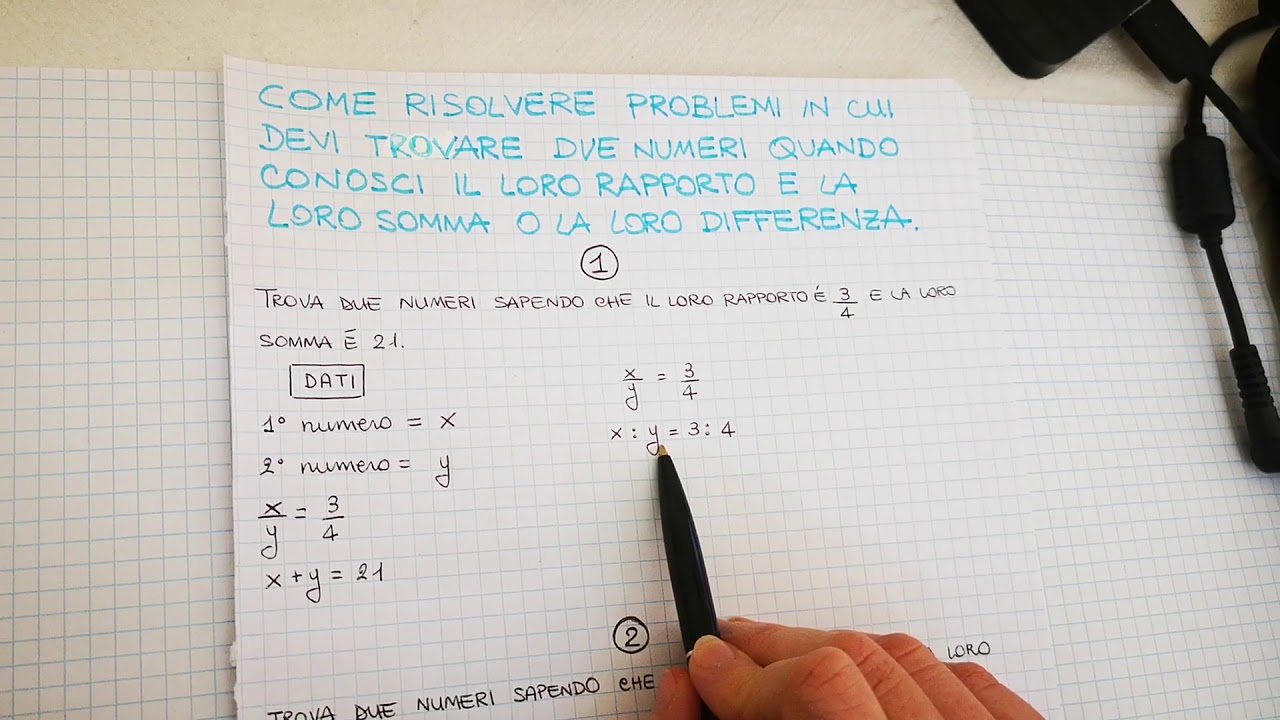 COME RISOLVERE PROBLEMI IN CUI
DEVI TROVARE DUE NUMERI QUANDO
CONOSCI IL LORO RAPPORTO E LA
LORO SOMMA O LA LORO DIFFERENZA.
1
TROVA DUE NUMERI SAPENDO CHE IL LORO RAPPORTO É 3/4 E LA LORO
SOMMA É 21.
DATI
1° numero = x
2° numero = y
x/y = 3/4
x + y = 21
x/y = 3/4
x : y = 3 : 4
2
TROVA DUE NUMERI SAPENDO CHE LORO